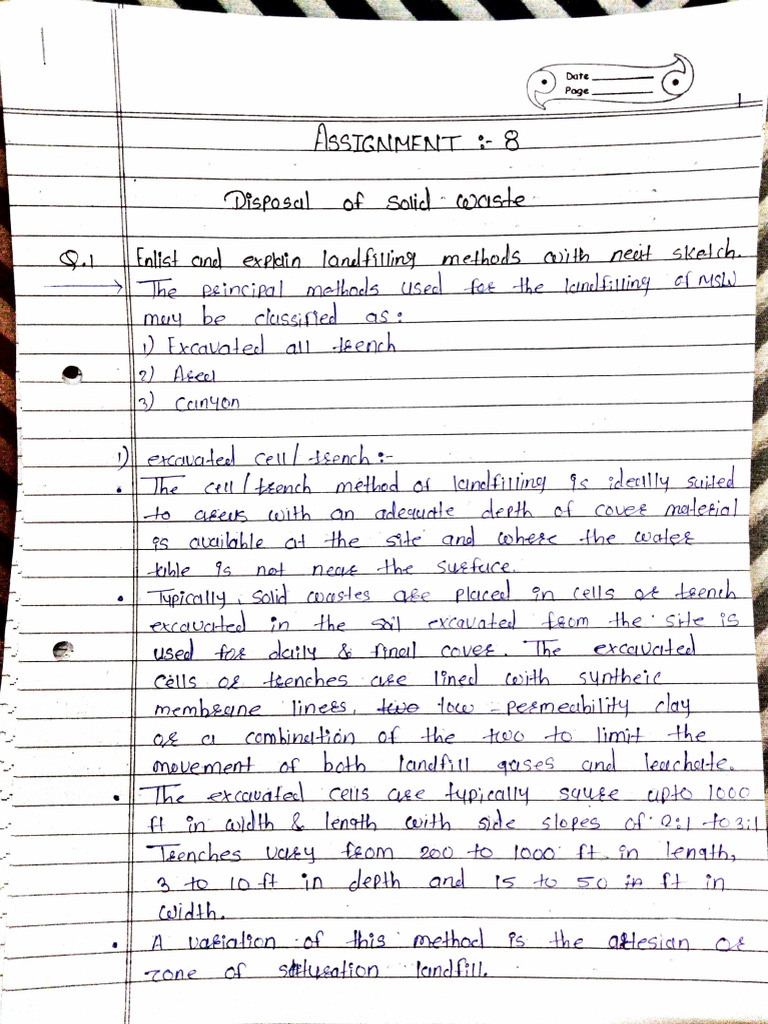 Date
Page
1
ASSIGNMENT :- 8
Disposal of solid waste
Q.1 Enlist and explain landfilling methods with neat sketch.
→ The principal methods used for the landfilling of MSW
may be classified as :
1) Excavated all trench
2) Areal
3) Canyon
1) excavated cell/trench :-
• The cell/trench method of landfilling is ideally suited
to areas with an adequate depth of cover material
is available at the site and where the water
table is not near the surface.
• Typically, solid wastes are placed in cells or trench
excavated in the soil excavated from the site is
used for daily & final cover. The excavated
cells or trenches are lined with syntheic
membrane liners, two low-permeability clay
or a combination of the two to limit the
movement of both landfill gases and leachate.
• The excavated cells are typically saure upto 1000
ft in width & length with side slopes of 2:1 to 3:1
Trenches vary from 200 to 1000 ft. in length,
3 to 10 ft in depth and 15 to 50 in ft in
width.
• A variation of this method is the artesian or
zone of saturation landfill.